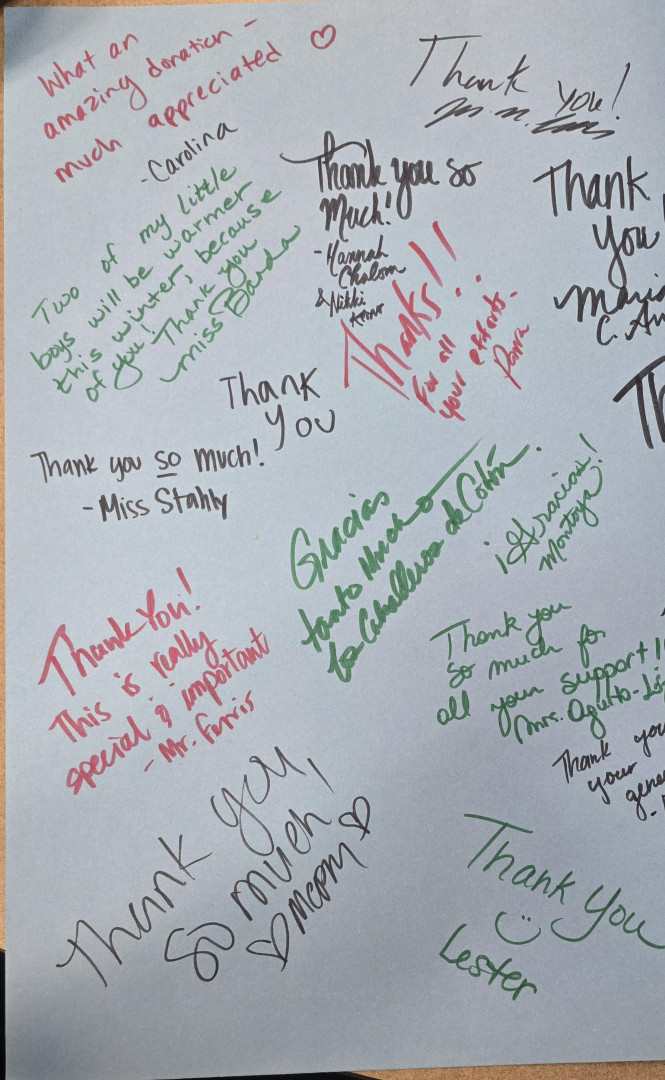 What an
amazing donation -
much appreciated
- Carolina
Thank you!
Two of my little
boys will be warmer
this winter, because
of you! Thank you
miss Banda
Thank you so
Much!
- Hannah
Chalom
& Nikki
Thank
you
Maria
C. Au
Thanks!!
For all
your efforts -
Th
Thank
you
Thank you so much!
- Miss Stahly
Gracias
tanto Mucho
los Caballeros de Colón.
¡Gracias!
Montoya
Thank you
so much for
all your support!!
Mrs. Agurto-Li
Thank You!
This is really
special & important
- Mr. Farris
Thank you
your
gene
Thank you,
so much!
Thank you
Lester